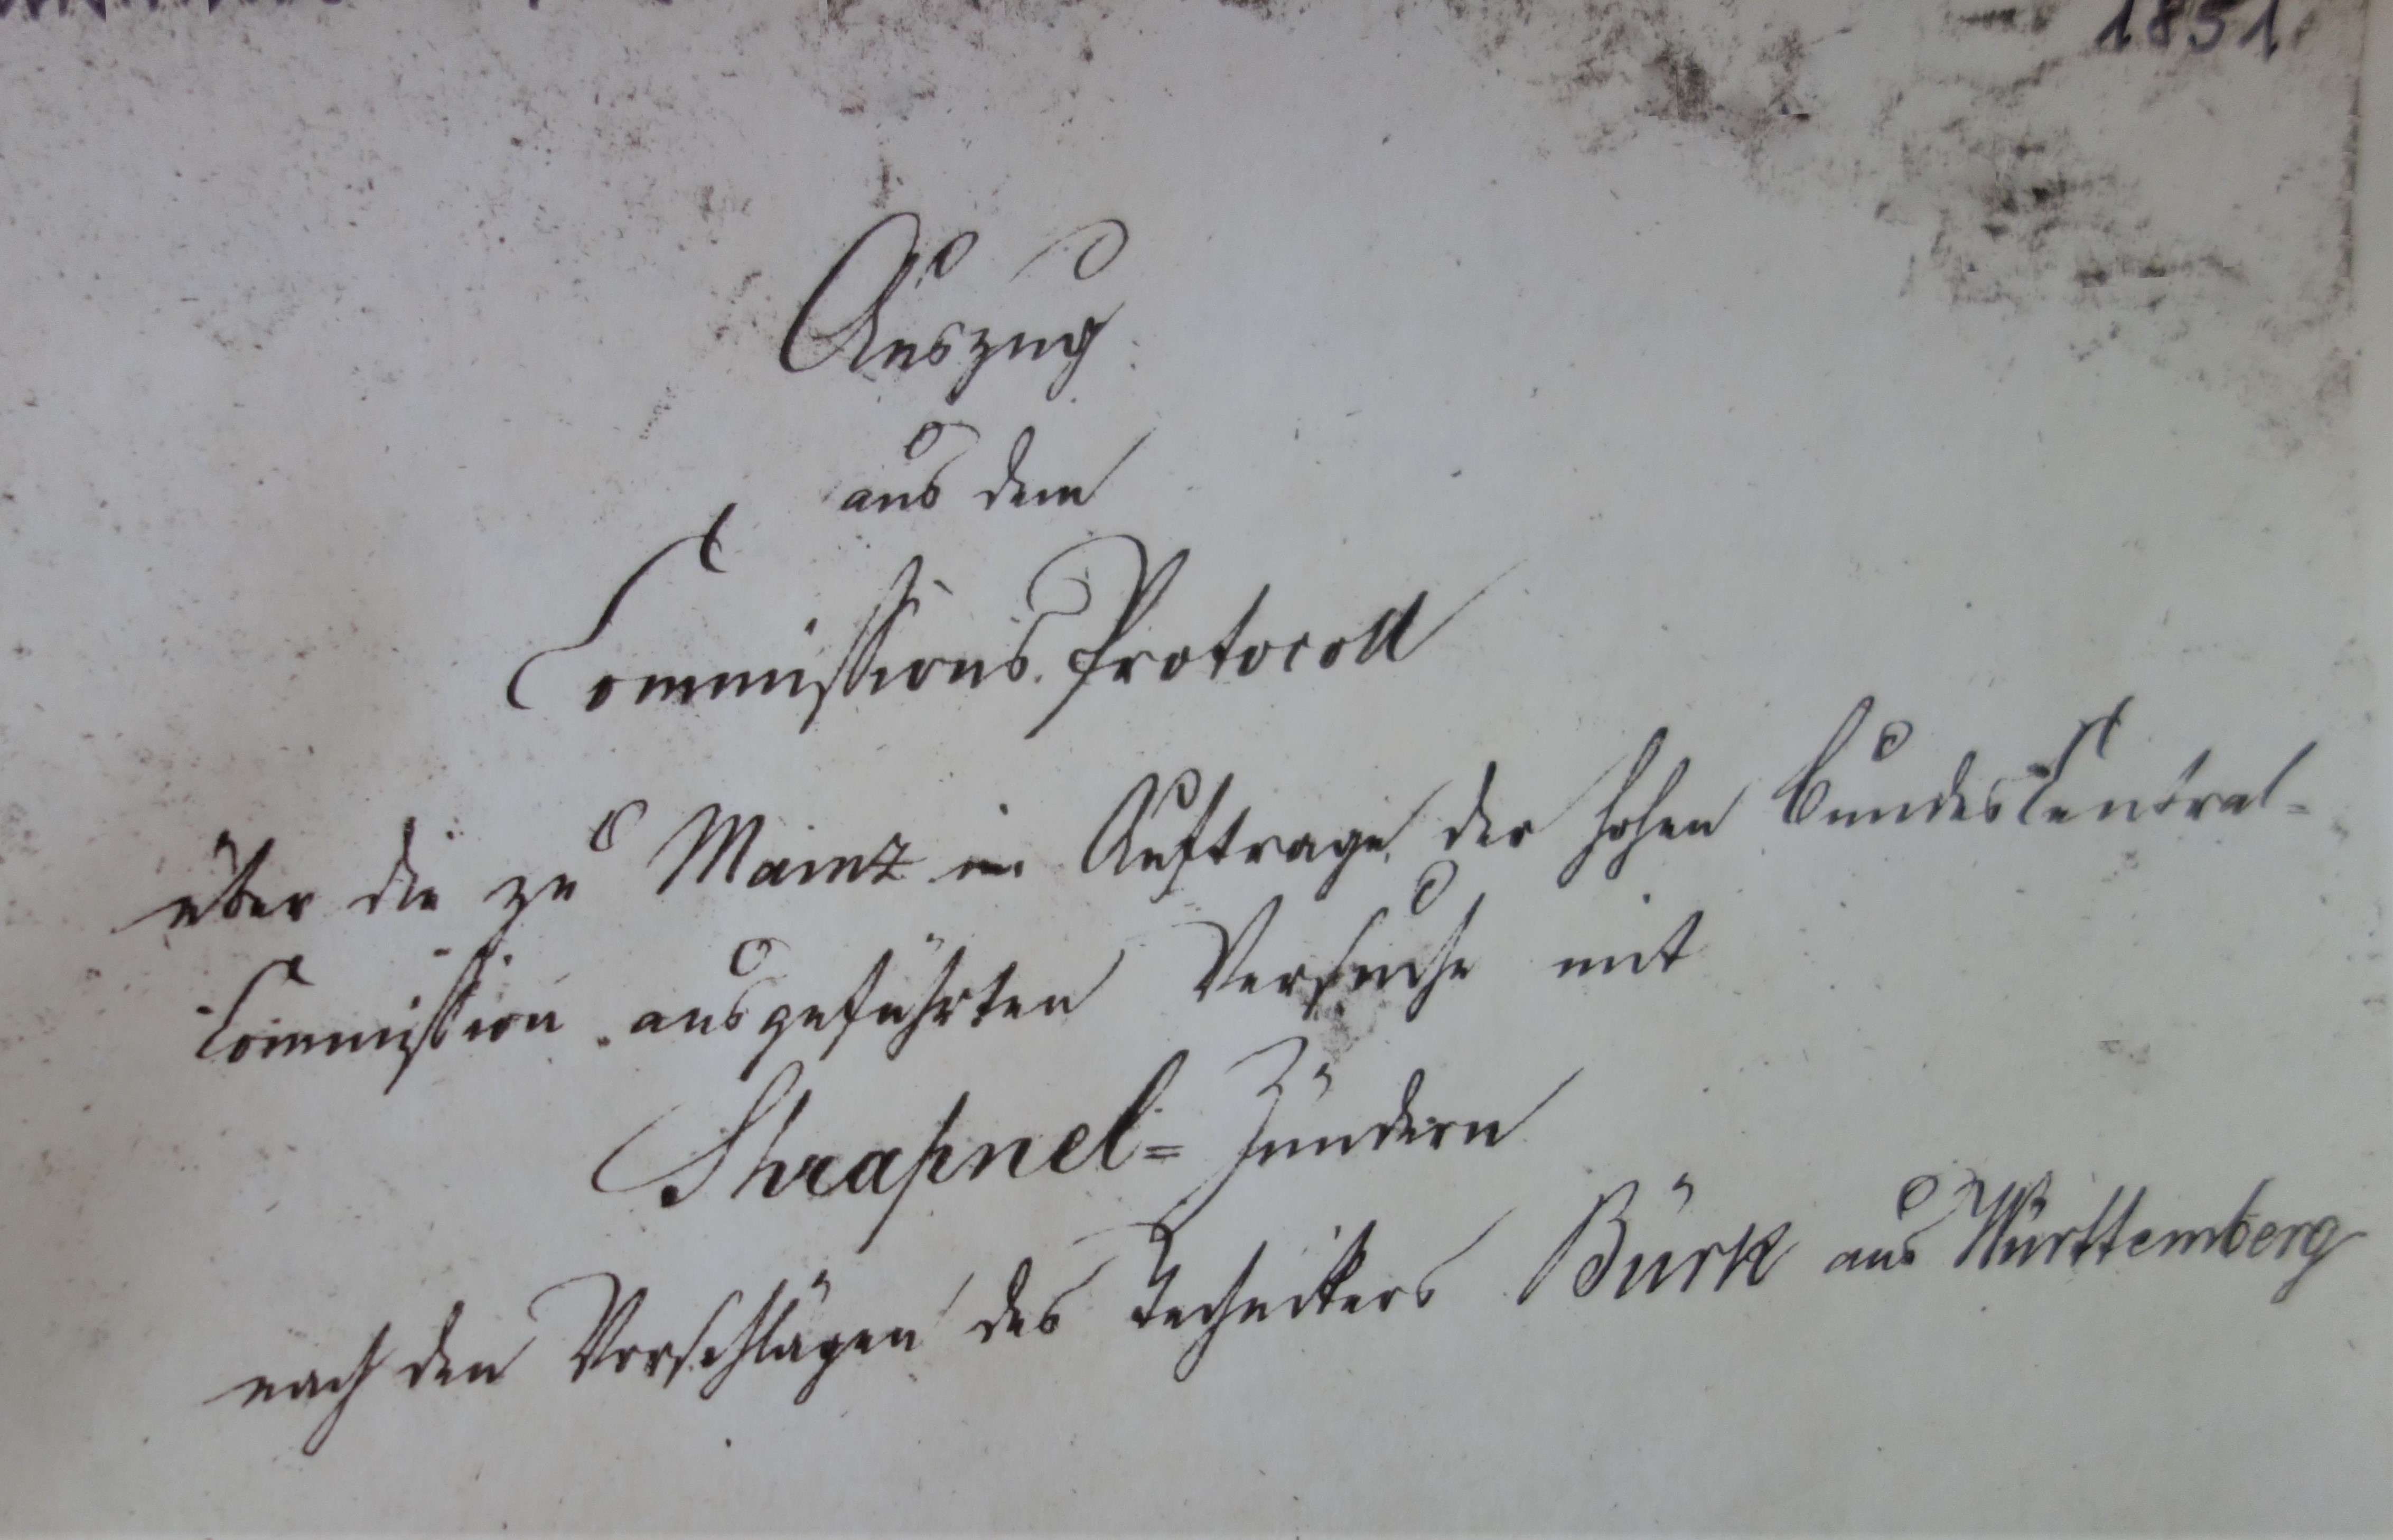 1851.
Auszug
aus dem
Commissions-Protocoll
über die zu Mainz im Auftrage der hohen Bundes Central=
Commission ausgeführten Versuche mit
Shrapnel= Zündern
nach den Vorschlägen des Technikers Bürk aus Württemberg